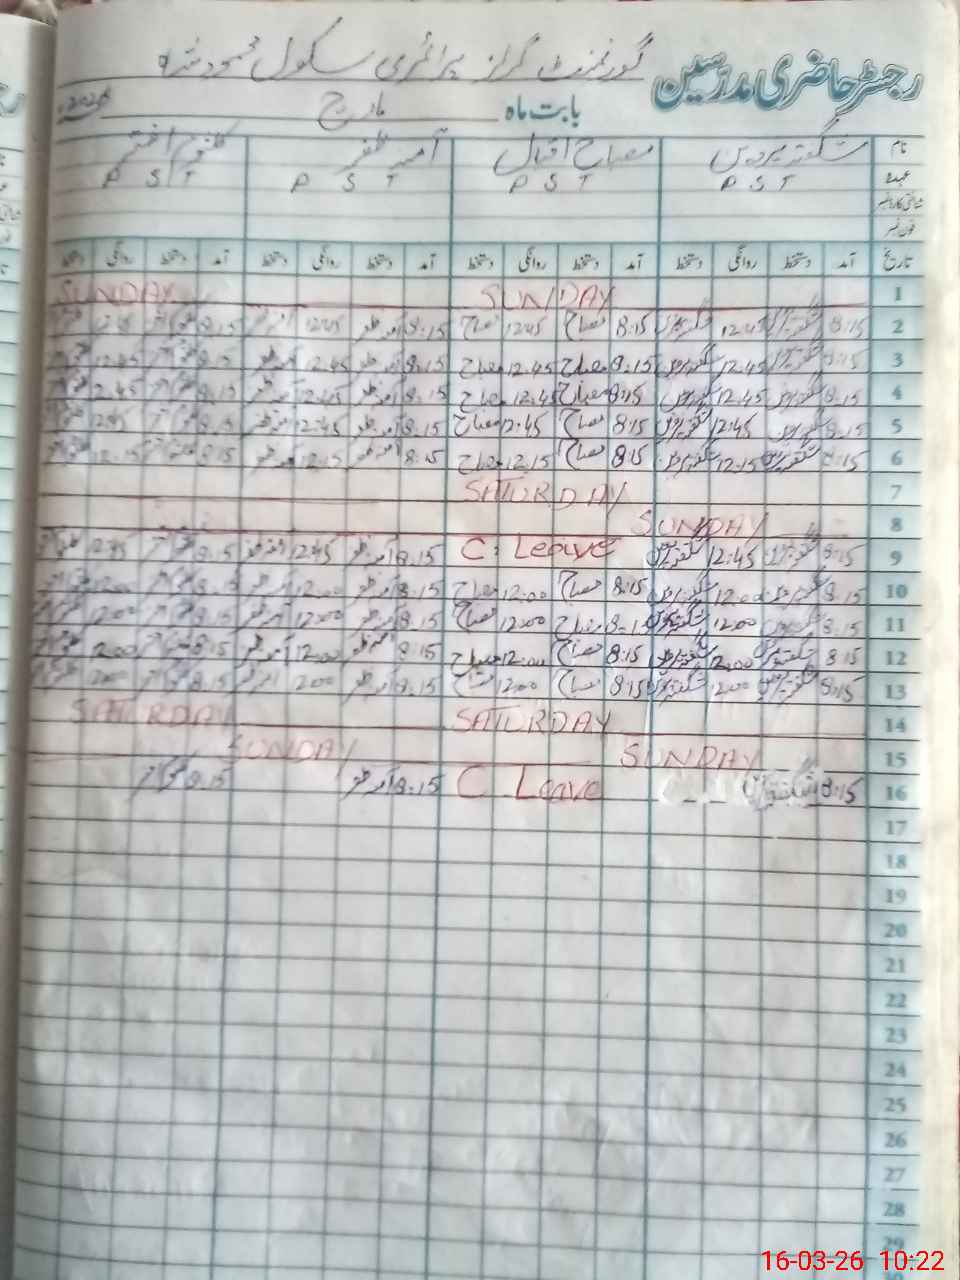 رجسٹر حاضری مدرسین گورنمنٹ گرلز پرائمری سکول
بابت ماہ مارچ 2026
نام شگفتہ پروین مصباح اقبال آمنہ ظفر کلثوم اختر
عہدہ PST PST PST PST
شناختی کارڈ نمبر
فون نمبر
تاریخ آمد دستخط روانگی دستخط آمد دستخط روانگی دستخط آمد دستخط روانگی دستخط آمد دستخط روانگی دستخط
1 SUNDAY SUNDAY
2 8:15 شگفتہ پروین 12:45 شگفتہ پروین 8:15 مصباح 12:45 مصباح 8:15 آمنہ ظفر 12:45 آمنہ ظفر 8:15 12:45
3 8:15 شگفتہ پروین 12:45 شگفتہ پروین 8:15 مصباح 12:45 مصباح 8:15 آمنہ ظفر 12:45 آمنہ ظفر 8:15 12:45
4 8:15 شگفتہ پروین 12:45 شگفتہ پروین 8:15 مصباح 12:45 مصباح 8:15 آمنہ ظفر 12:45 آمنہ ظفر 8:15 2:45
5 8:15 شگفتہ پروین 12:45 شگفتہ پروین 8:15 مصباح 12:45 مصباح 8:15 آمنہ ظفر 12:45 آمنہ ظفر 8:15 12:45
6 8:15 شگفتہ پروین 12:15 شگفتہ پروین 8:15 مصباح 12:15 مصباح 8:15 آمنہ ظفر 12:15 آمنہ ظفر 8:15 12:15
7 SATURDAY
8 SUNDAY
9 8:15 شگفتہ پروین 12:45 شگفتہ پروین C. Leave 8:15 آمنہ ظفر 12:45 آمنہ ظفر 8:15 12:45
10 8:15 شگفتہ پروین 12:00 شگفتہ پروین 8:15 مصباح 12:00 مصباح 8:15 آمنہ ظفر 12:00 آمنہ ظفر 8:15 12:00
11 8:15 شگفتہ پروین 12:00 شگفتہ پروین 8:15 مصباح 12:00 مصباح 8:15 آمنہ ظفر 12:00 آمنہ ظفر 8:15 12:00
12 8:15 شگفتہ پروین 12:00 شگفتہ پروین 8:15 مصباح 12:00 مصباح 8:15 آمنہ ظفر 12:00 آمنہ ظفر 8:15 12:00
13 8:15 شگفتہ پروین 12:00 شگفتہ پروین 8:15 مصباح 12:00 مصباح 8:15 آمنہ ظفر 200 آمنہ ظفر 8:15 200
14 SATURDAY SATURDAY
15 SUNDAY SUNDAY
16 8:15 شگفتہ پروین C Leave 8:15 آمنہ ظفر 8:15
17
18
19
20
21
22
23
24
25
26
27
28
29
16-03-26 10:22